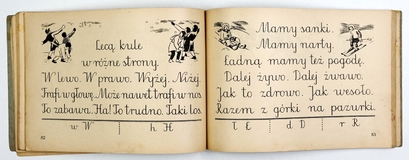 Lecą kule
w różne strony.
W lewo. W prawo. Wyżej. Niżej.
Trafi w głowę. Może nawet trafi w nos.
To zabawa. Ha! To trudno. Taki los.
w W h H
82
Mamy sanki.
Mamy narty.
Ładną mamy też pogodę.
Dalej żywo. Dalej żwawo.
Jak to zdrowo. Jak wesoło.
Razem z górki na pazurki.
ł Ł d D r R
83